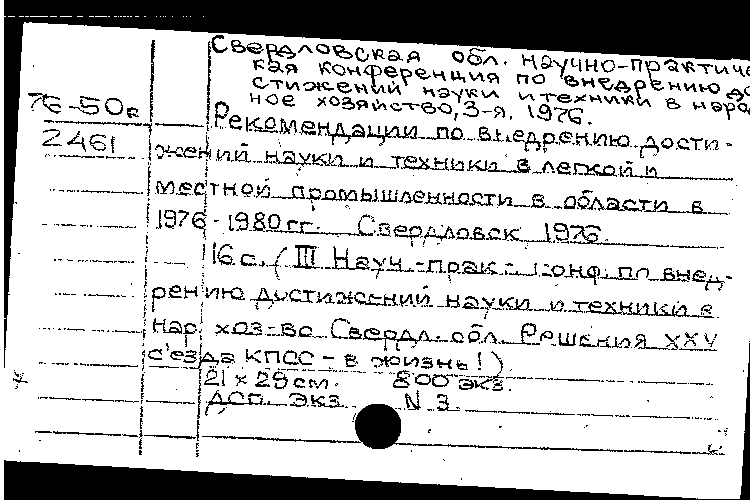 Свердловская обл. научно-практиче
кая конференция по внедрению до
стижений науки и техники в наро
ное хозяйство, 3-я, 1976.
76-50в
2461
Рекомендации по внедрению дости-
жений науки и техники в легкой и
местной промышленности в области в
1976-1980 гг. Свердловск 1976.
16 с. (III Науч.-прак. конф. по внед-
рению достижений науки и техники в
нар. хоз-во Свердл. обл. Решения XXV
с'езда КПСС - в жизнь!)
21 х 29 см. 800 экз.
ДСП. экз. N 3.